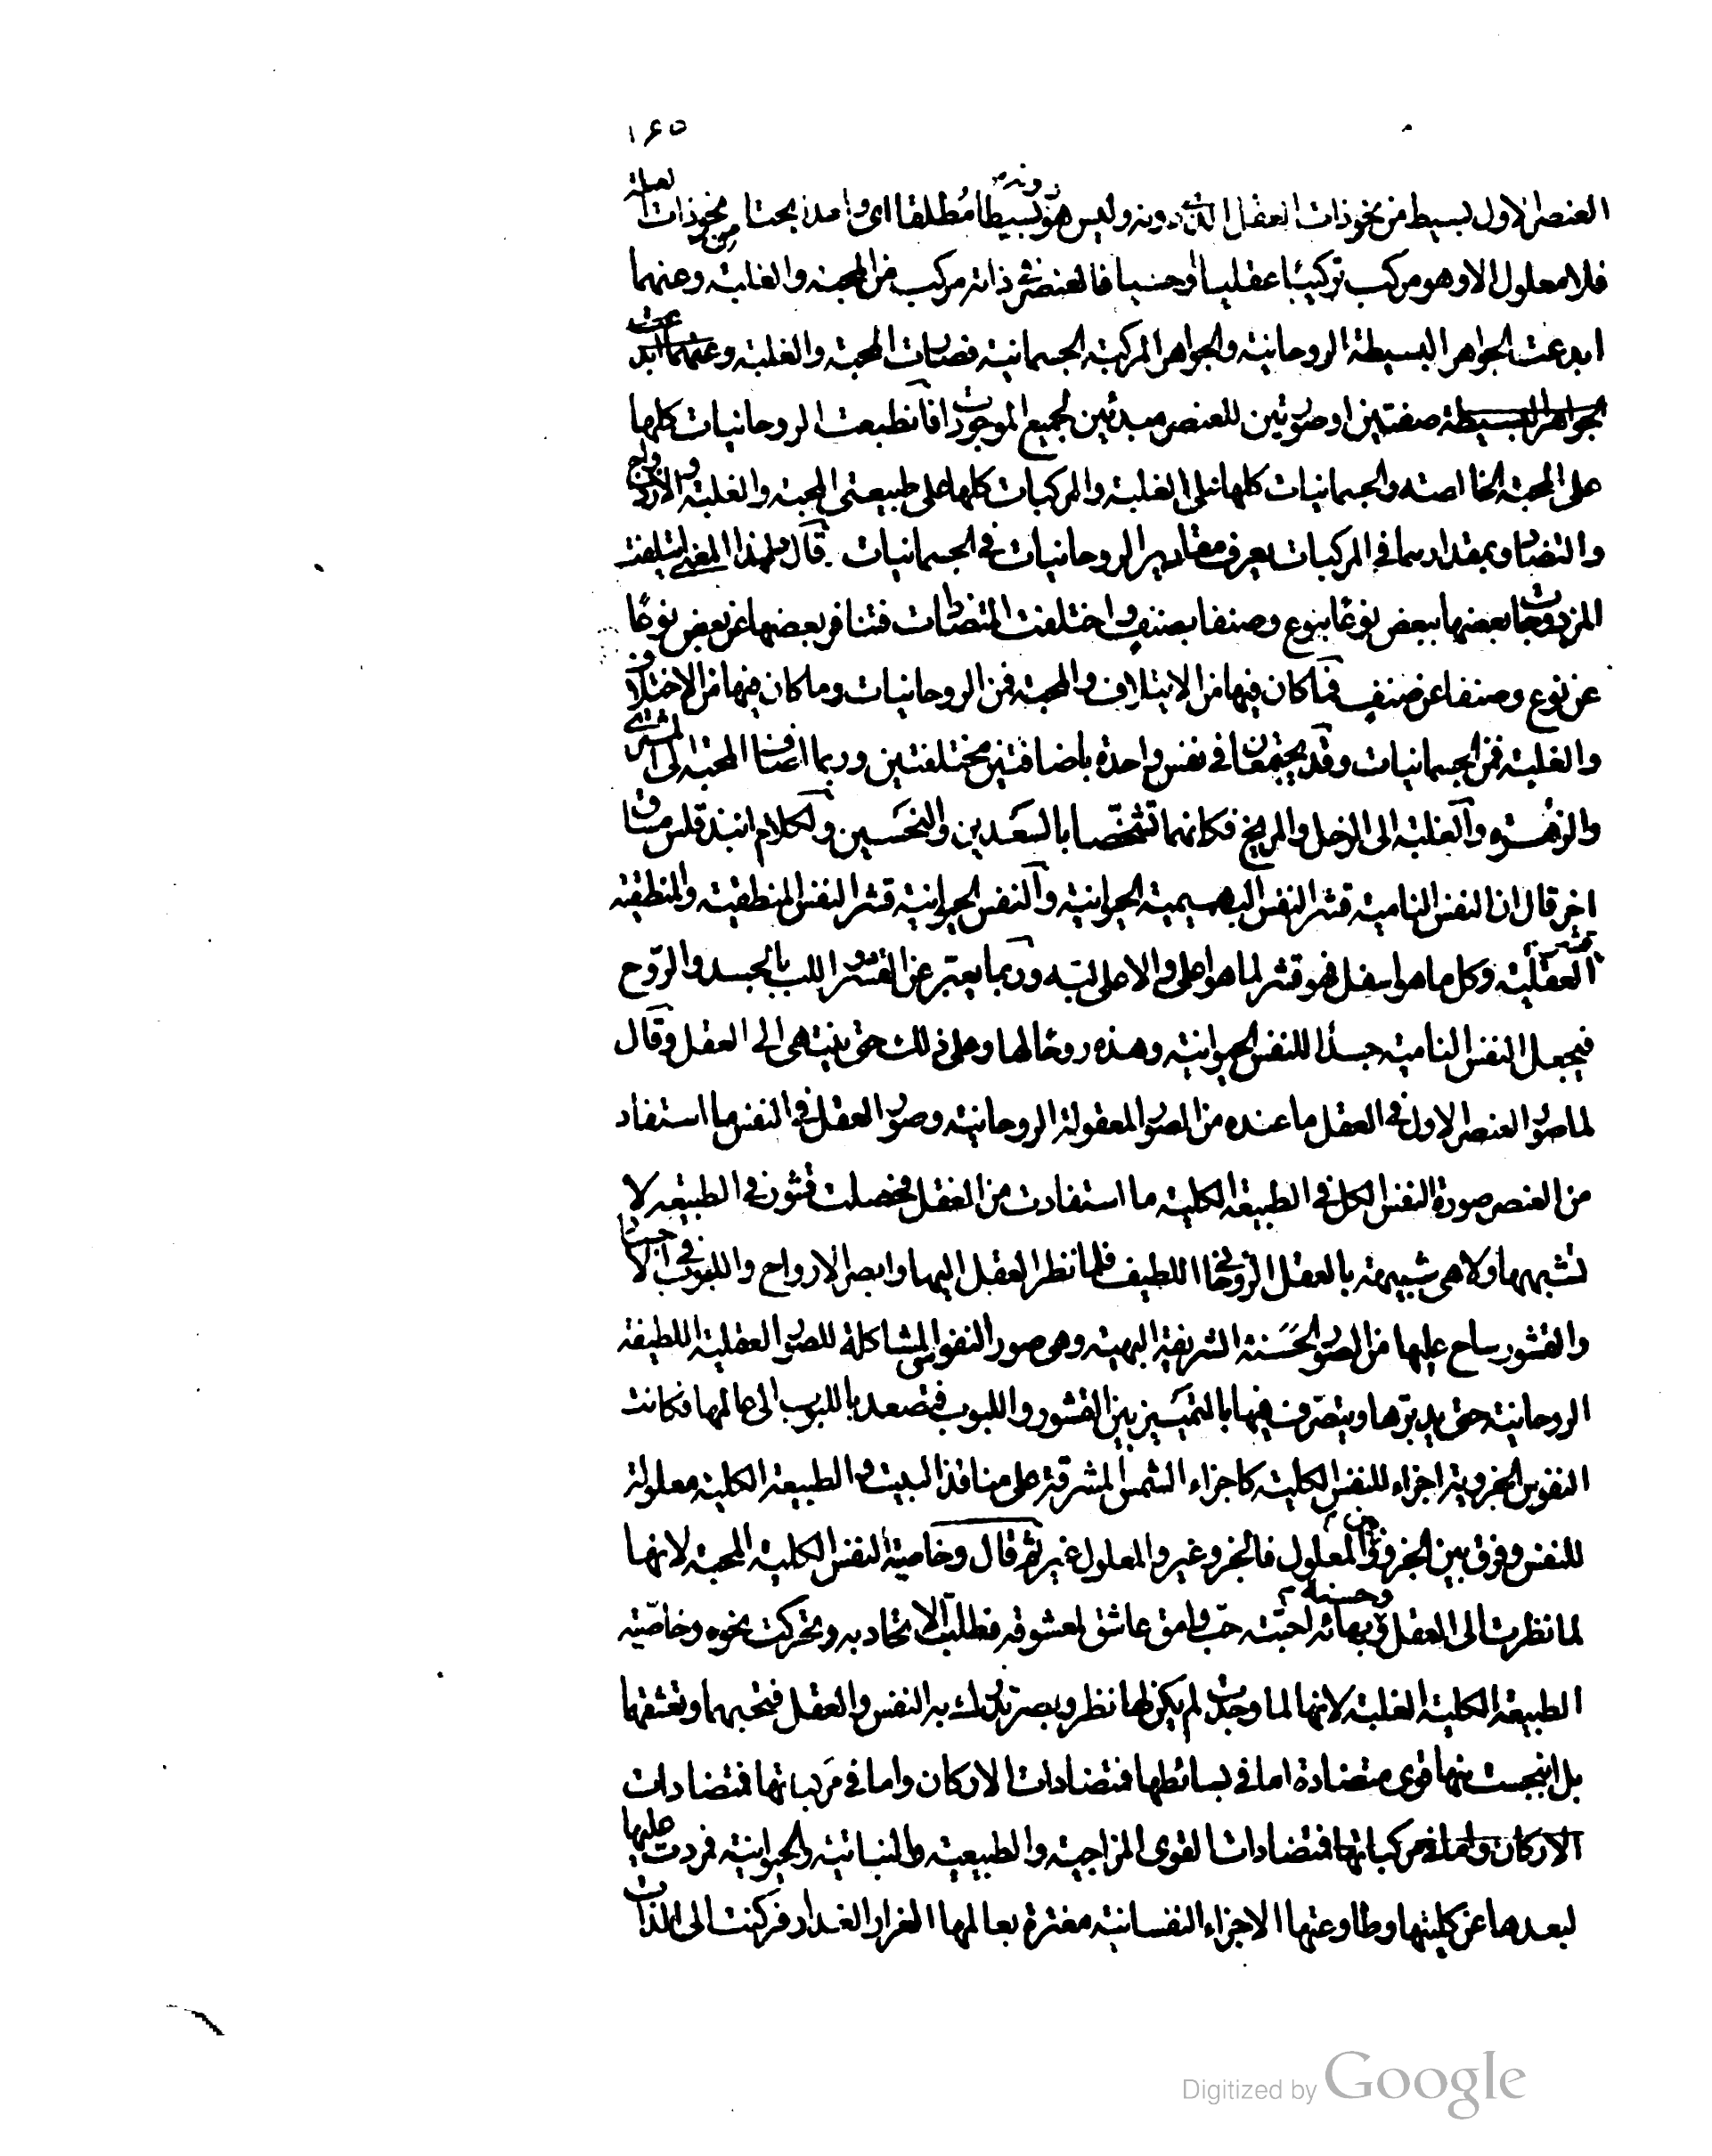 ١٦٥
العنصر الاول بسيط من نحو ذات العقل الذى دونه وليس هو دونه بسيطا مطلقا اى واحدا بحتا من نحو ذات العلة
فلا معلول الا وهو مركب تركيبا عقليا او حسيا فالعنصر فى ذاته مركب من المحبة والغلبة وعنهما
ابدعت الجواهر البسيطة الروحانية والجواهر المركبة الجسمانية فصارت المحبة والغلبة وعنهما ابدعت
الجواهر البسيطة صفتين او صورتين للعنصر مبدئين لجميع الموجودات فانطبعت الروحانيات كلها
على المحبة الخالصة والجسمانيات كلها على الغلبة والمركبات كلها على طبيعتى المحبة والغلبة والازدواج
والتضاد وبمقدارهما فى المركبات يعرف مقادير الروحانيات فى الجسمانيات قال ولهذا المعنى ايتلفت
المزدوجات بعضها ببعض نوعًا بنوع وصنفا بصنف واختلفت المتضادات فتنافر بعضها عن بعض نوعًا
عن نوع وصنفا عن صنف فما كان فيها من الايتلاف والمحبة فمن الروحانيات وما كان فيها من الاختلاف
والغلبة فمن الجسمانيات وقد يجتمعان فى نفس واحدة باضافتين مختلفتين وربما اضاف المحبة الى المشترى
والزهرة والغلبة الى الزحل والمريخ فكانهما تشخصا بالسعدين والنحسين ولكلام انبذقلس مساق
اخر قال ان النفس النامية قشر النفس البهيمية الحيوانية والنفس الحيوانية قشر النفس المنطقية والمنطقية
قشر العقلية وكل ما هو اسفل فهو قشر لما هو اعلى والاعلى لبه وربما يعبر عن القشر واللب بالجسد والروح
فيجعل النفس النامية جسدا للنفس الحيوانية وهذه روحًا لها وعلى ذلك حتى ينتهى الى العقل وقال
لما صور العنصر الاول فى العقل ما عنده من الصور المعقولة الروحانية وصور العقل فى النفس ما استفاد
من العنصر صورة النفس الكل فى الطبيعة الكلية ما استفادت من العقل فحصلت قشور فى الطبيعة لا
تشبهها ولا هى شبيهة بالعقل الروحانى اللطيف فلما نظر العقل اليها وابصر الارواح واللبوب فى الاجساد
والقشور ساح عليها من الصور الحسنة الشريفة البهية وهى صور النفوس المشاكلة للصور العقلية اللطيفة
الروحانية حتى يدبرها ويتصرف فيها بالتمييز بين القشور واللبوب فتصعد باللبوب الى عالمها فكانت
النفوس الجزوية اجزاء للنفس الكلية كاجزاء الشمس المشرقة على منافذ البيت والطبيعة الكلية معلولة
للنفس وفرق بين الجزو وبين المعلول فالجزو غير والمعلول غير ثم قال وخاصية النفس الكلية المحبة لانها
لما نظرت الى العقل وحسنه وبهائه احبته حب وامق عاشق لمعشوقه فطلبت الاتحاد به وتحركت نحوه وخاصية
الطبيعة الكلية الغلبة لانها لما وجدت لم يكن لها نظر وبصر تدرك به النفس والعقل فتحبهما وتعشقهما
بل انبجست منها قوى متضادة اما فى بسائطها فمتضادات الاركان واما فى مركباتها فمتضادات
الاركان واما فى مركباتها فمتضادات القوى المزاجية والطبيعية والنباتية والحيوانية فمردت عليها
لبعدها عن كليتها وطاوعتها الاجزاء النفسانية مغترة بعالمها الغرار الغدار فركنت الى لذات
Digitized by Google